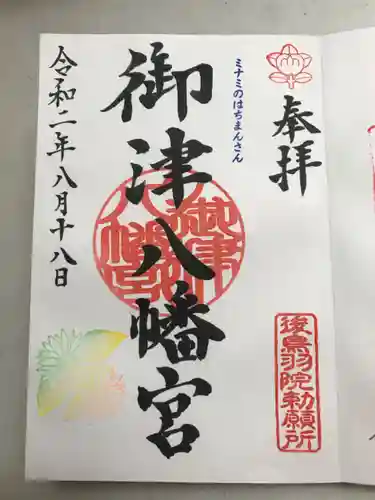 奉拝
ミナミのはちまんさん
御津八幡宮
令和二年八月十八日
後鳥羽院勅願所